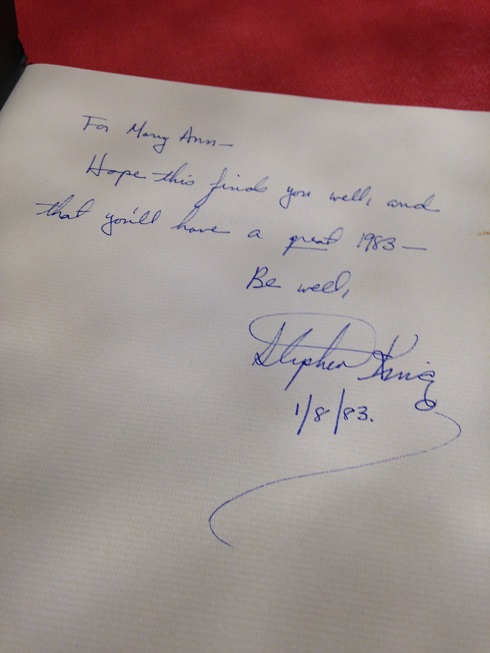 For Mary Ann—
Hope this finds you well, and
that you'll have a great 1983—
Be well,
Stephen King
1/8/83.